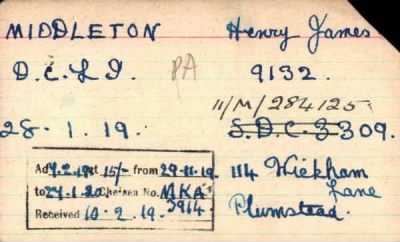 MIDDLETON Henry James
D.C.L.I. PA 9132.
11/M/284125
28.1.19. S.D.C.3309.
Ad 7.2.19 at 15/- from 29.11.19. 114 Wickham
to 27.1.20 Chelsea No. MKA Lane
Received 10-2.19. 3914 Plumstead.